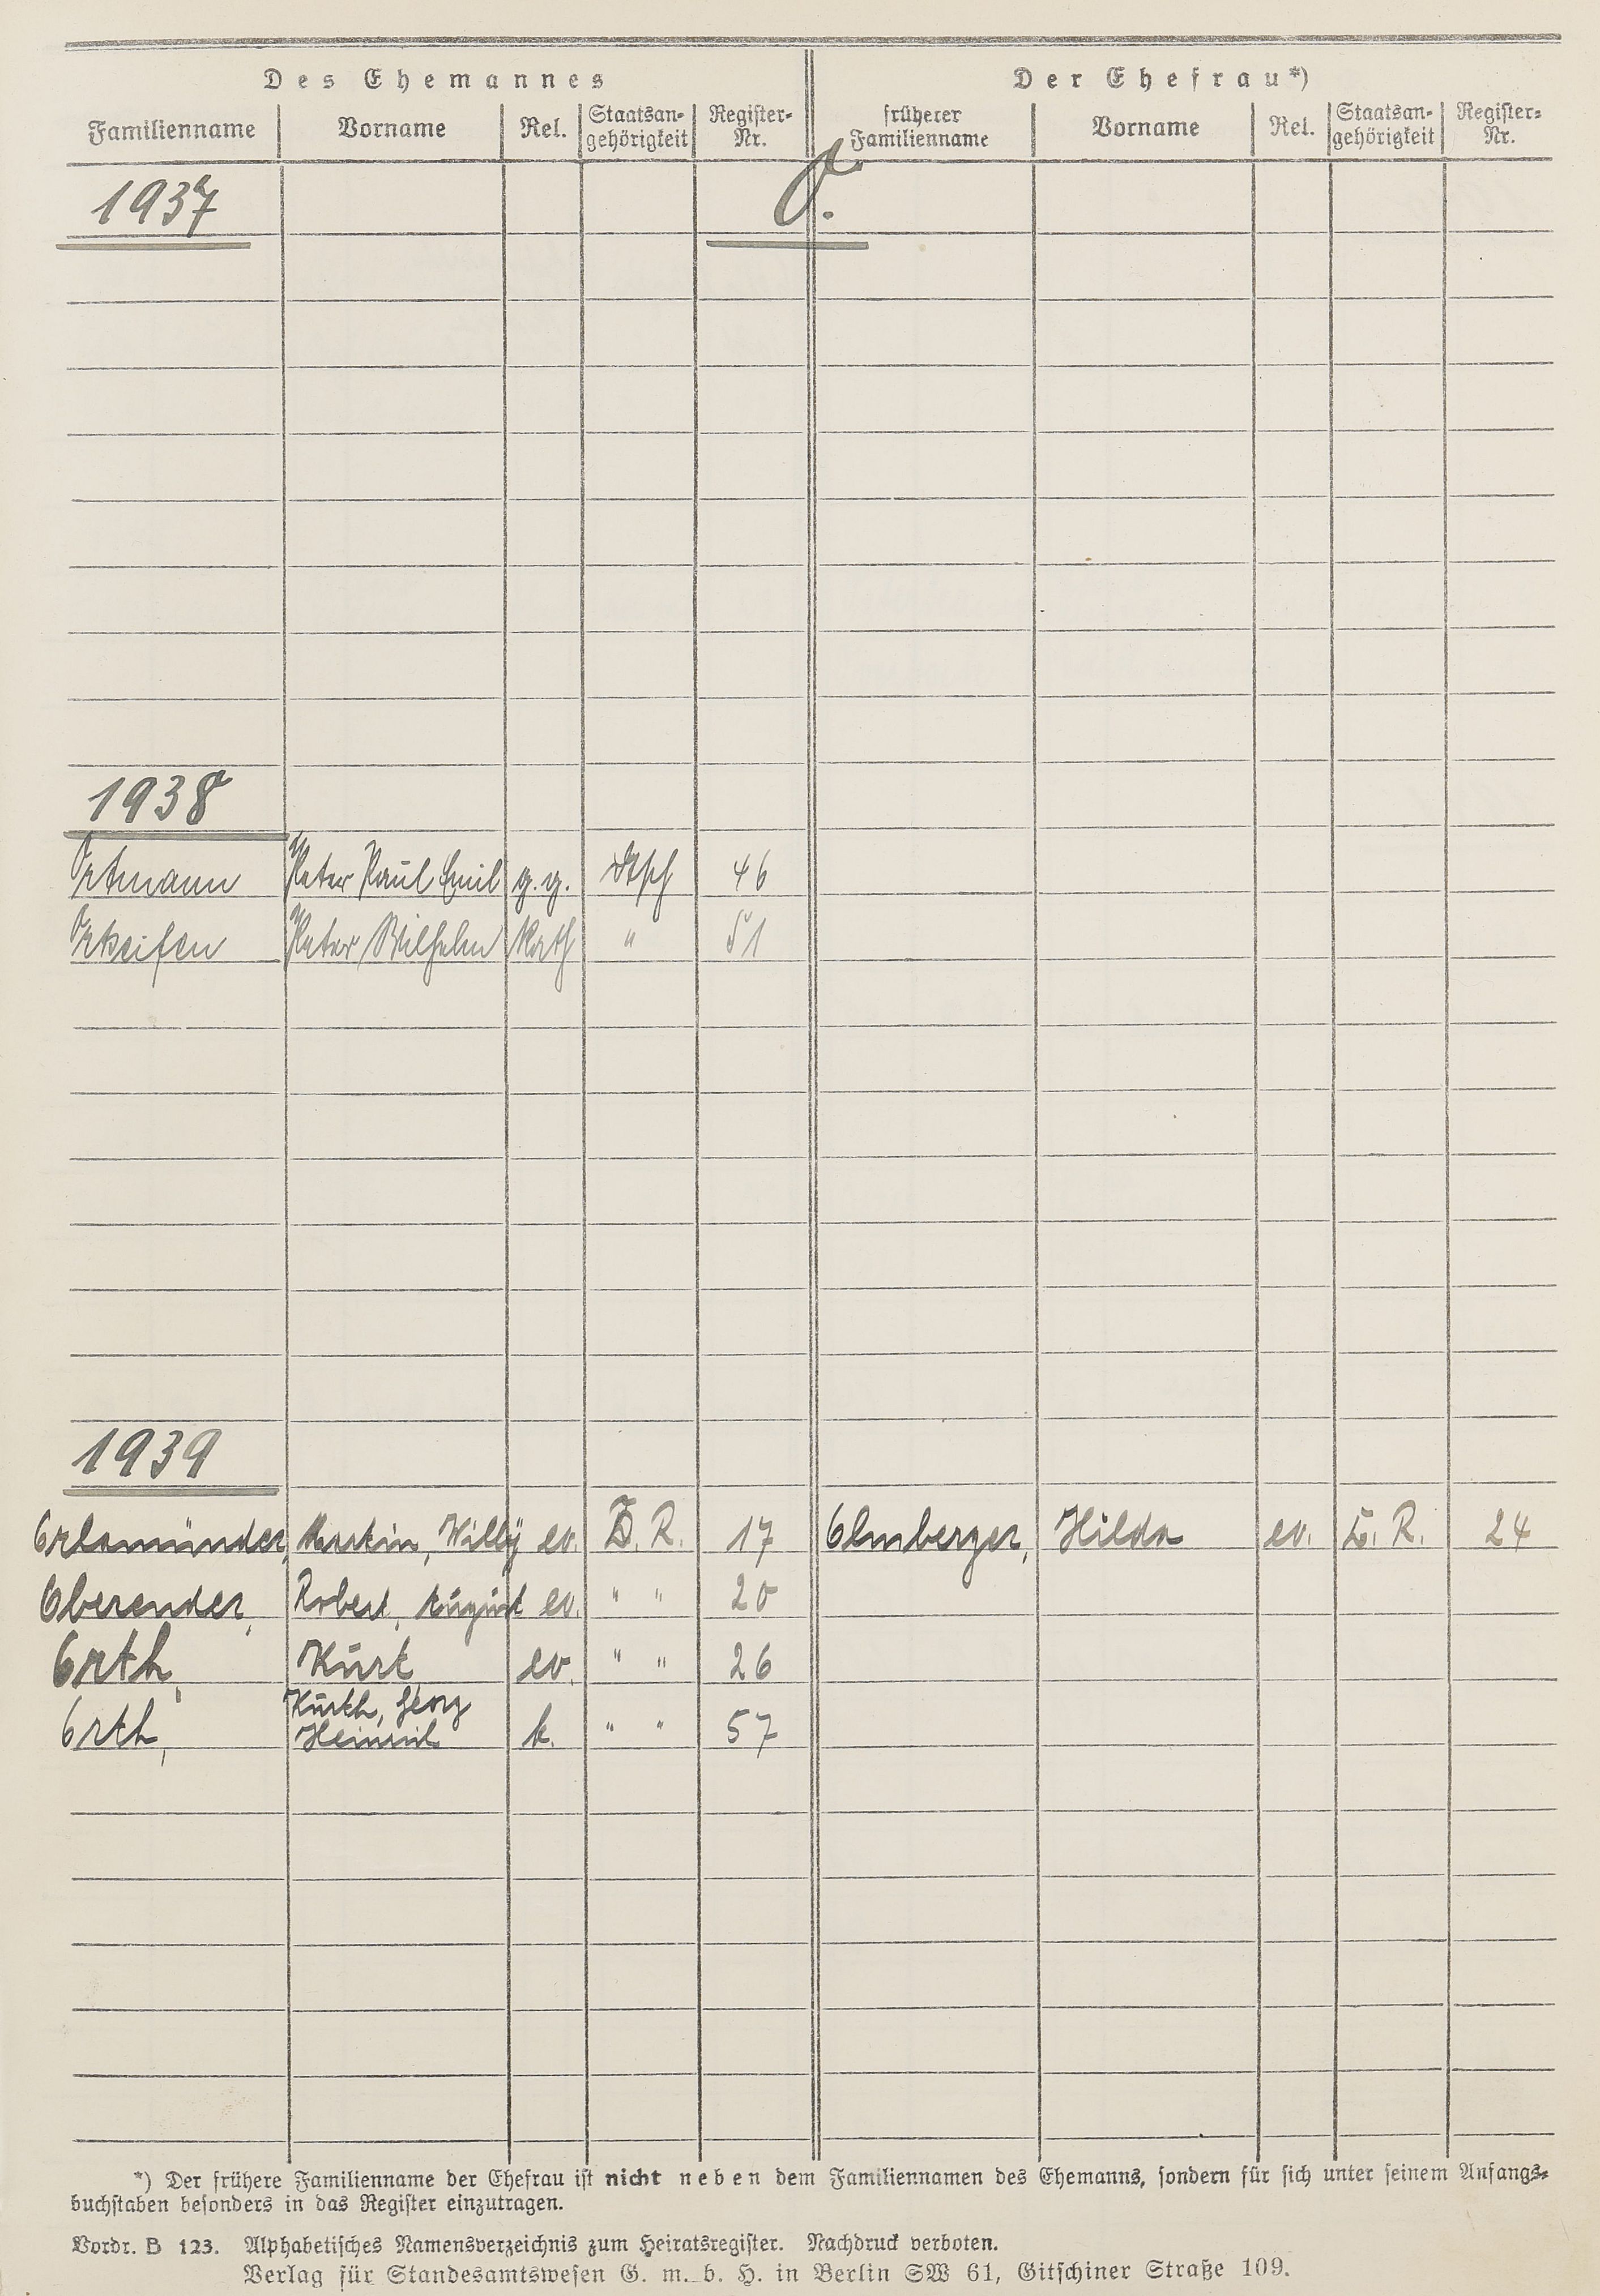 Des Ehemannes Der Ehefrau*)
Familienname Vorname Rel. Staatsan-gehörigkeit Register-Nr. früherer Familienname Vorname Rel. Staatsan-gehörigkeit Register-Nr.
1937 O.
1938
Ortmann Peter Paul Emil g.g. dtsch 46
Ortseifen Peter Wilhelm Kath " 51
1939
Orlamünder, Martin, Willÿ ev. D. R. 17 Olmberger, Hilda ev. D. R. 24
Oberender, Robert, August ev. " " 20
Orth, Kurt ev. " " 26
Orth, Kurth, Georg
Heinrich k. " " 57
*) Der frühere Familienname der Ehefrau ist nicht neben dem Familiennamen des Ehemanns, sondern für sich unter seinem Anfangs-
buchstaben besonders in das Register einzutragen.
Vordr. B 123. Alphabetisches Namensverzeichnis zum Heiratsregister. Nachdruck verboten.
Verlag für Standesamtswesen G. m. b. H. in Berlin SW 61, Gitschiner Straße 109.